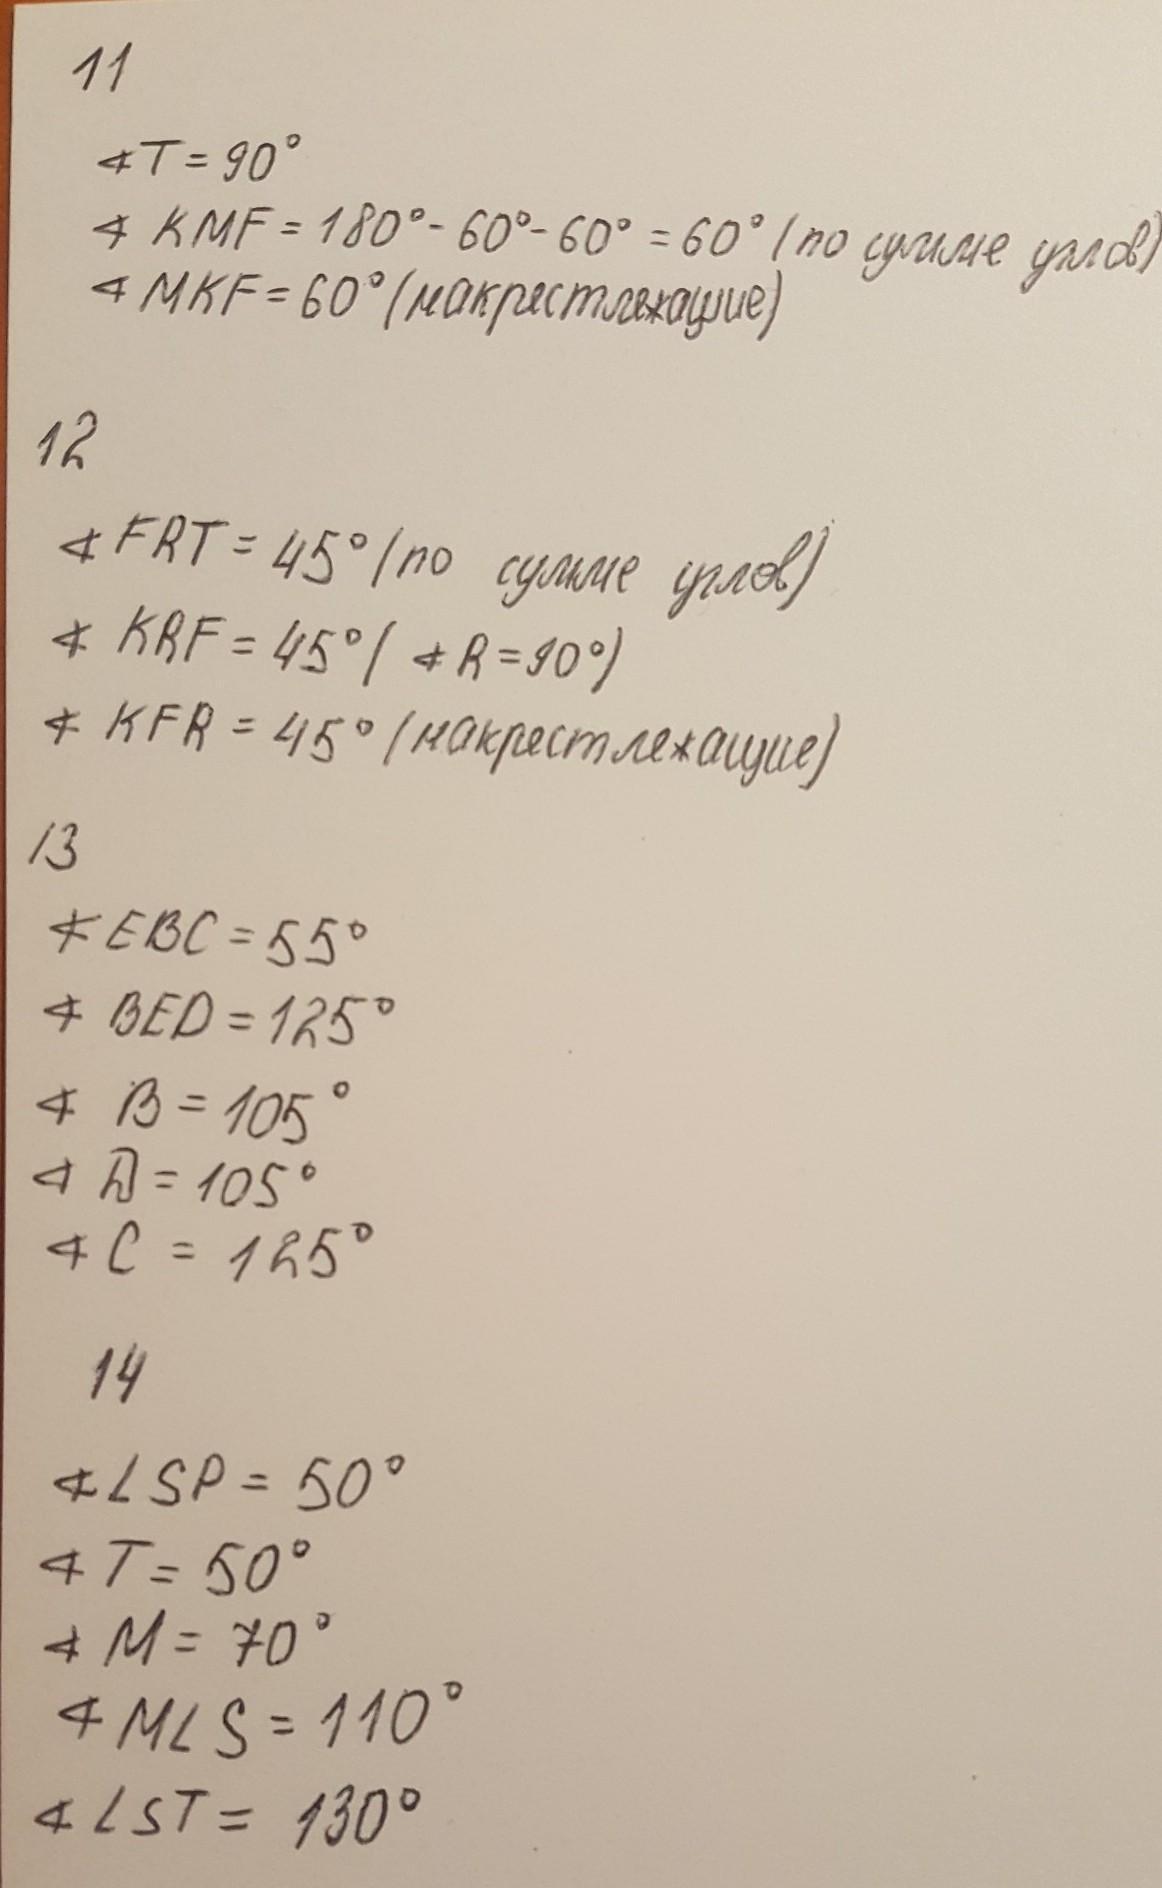 11
∢T = 90°
∢ KMF = 180° - 60° - 60° = 60° (по сумме углов)
∢ MKF = 60° (накрестлежащие)
12
∢ FRT = 45° (по сумме углов)
∢ KRF = 45° ( ∢ R = 90°)
∢ KFR = 45° (накрестлежащие)
13
∢ EBC = 55°
∢ BED = 125°
∢ B = 105°
∢ D = 105°
∢ C = 125°
14
∢ LSP = 50°
∢ T = 50°
∢ M = 70°
∢ MLS = 110°
∢ LST = 130°